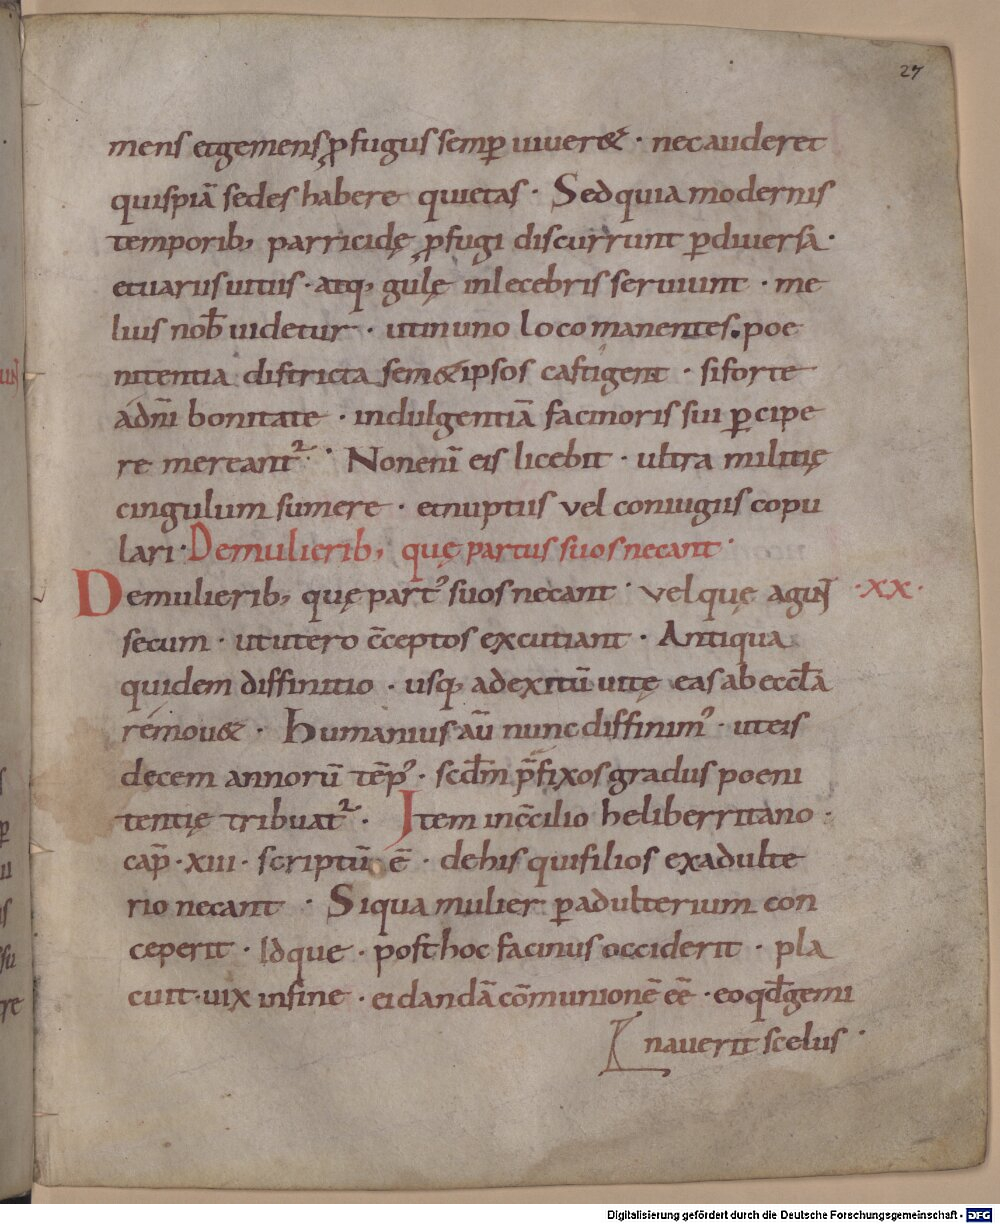 27
mens et gemens ꝓfugus semꝑ uiueret · nec auderet
quispiā sedes habere quietas · Sed quia modernis
temporib; parricidę ꝓfugi discurrunt ꝑ diuersa ·
et uariis uitiis · atq; gulę inlecebris seruiunt · me
lius nob̄ uidetur · ut in uno loco manentes · poe
nitentia districta sem& ipsos castigent · si forte
a dn̄i bonitate · indulgentiā facinoris sui ꝑcipe
re mereant᷑ · Non eni̅ eis licebit · ultra militię
cingulum sumere · et nuptiis vel coniugiis copu
lari · De mulierib; quę partus suos necant ·
De mulierib; quę partꝰ suos necant · vel quę agunt ·XX·
secum · ut utero c̄ceptos excutiant · Antiqua
quidem diffinitio · usq; ad exitū uitę eas ab eccl̄a
remou& · Humanius aū nunc diffinimꝰ · ut eis
decem annorū tēpꝰ · scd̄m p̄fixos gradus poeni
tentię tribuat᷑ · Item in c̄cilio heliberritano ·
cap̄ · XIII · scriptū ē · de his qui filios ex adulte
rio necant · Si qua mulier ꝑ adulterium con
ceperit · Idque · post hoc facinus occiderit · pla
cuit · uix in fine · ei dandā cōmunionē eē · eo qd̄ gemi
nauerit scelus ·
Digitalisierung gefördert durch die Deutsche Forschungsgemeinschaft - DFG